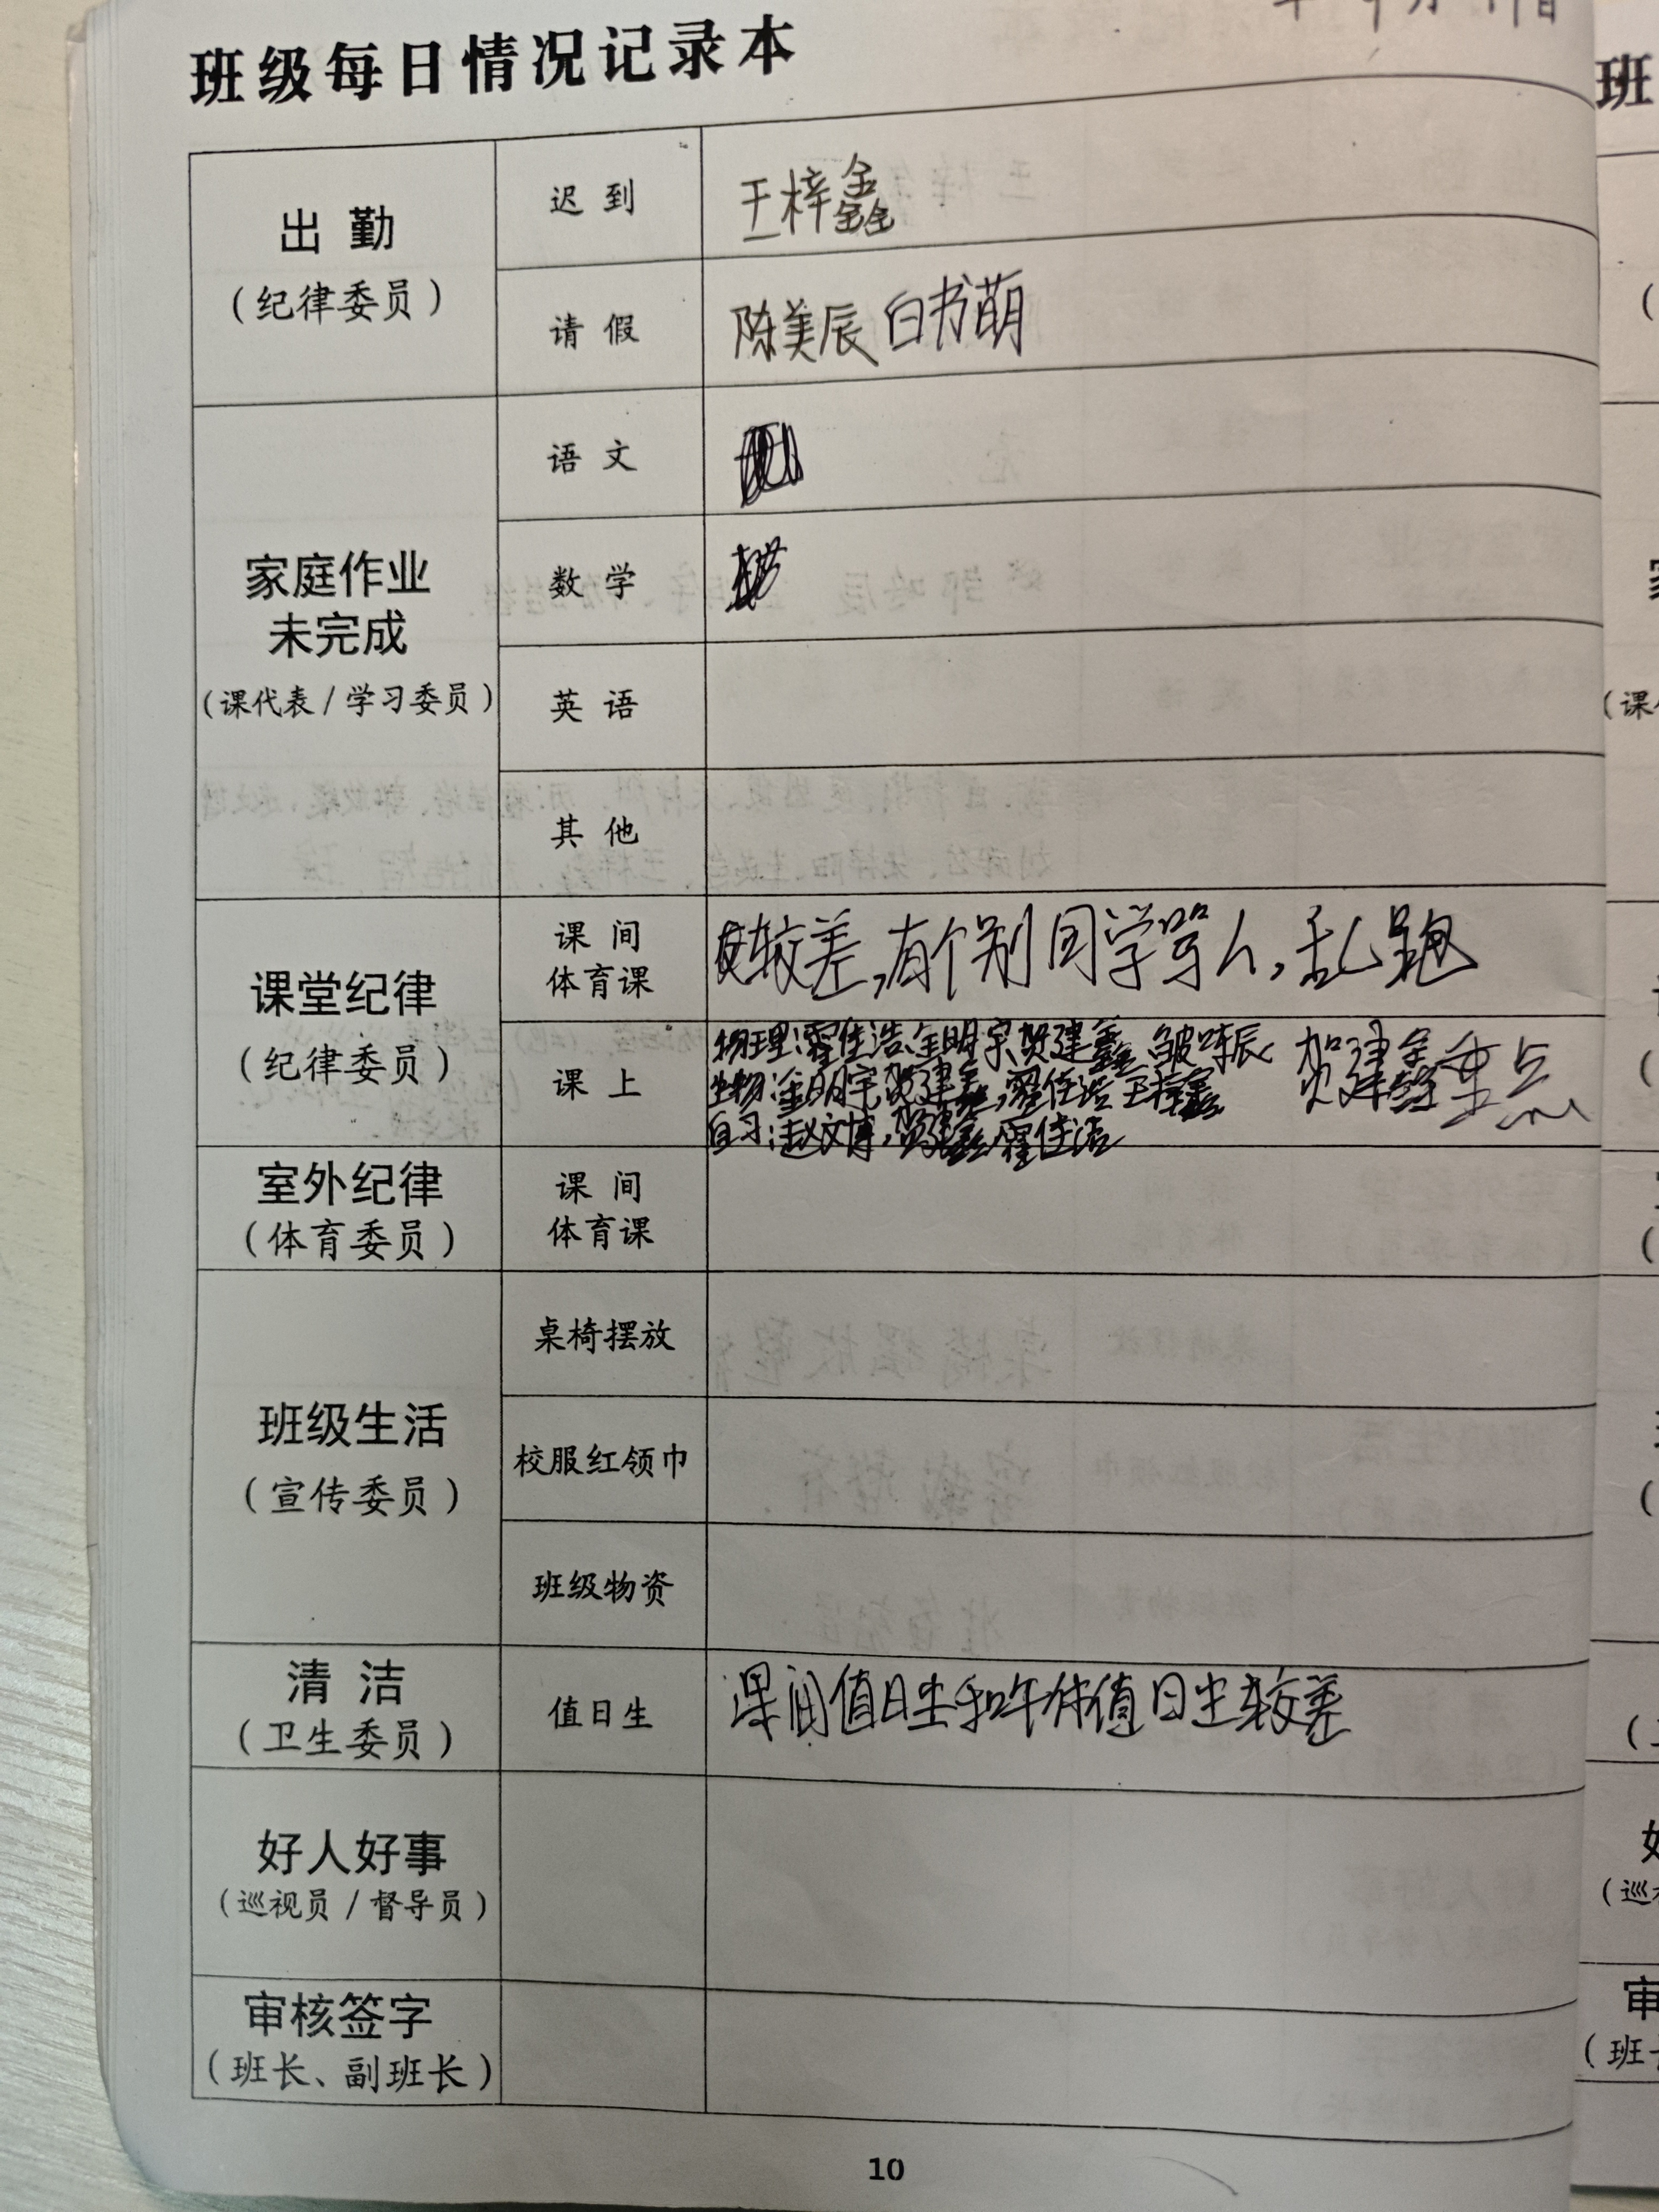 班级每日情况记录本
出 勤
（纪律委员）
迟 到
王梓鑫
请 假
陈美辰 白书萌
家庭作业
未完成
（课代表 / 学习委员）
语 文
数 学
英 语
其 他
课堂纪律
（纪律委员）
课 间
体育课
较差,有个别同学骂人,乱跑
课 上
物理:霍佳浩 金明宗 贺建鑫
生物:金明宗 贺建鑫,霍佳浩 王梓鑫
自习:赵文博,贺建鑫,霍佳浩
贺建鑫重点
室外纪律
（体育委员）
课 间
体育课
班级生活
（宣传委员）
桌椅摆放
校服红领巾
班级物资
清 洁
（卫生委员）
值日生
课间值日生和午休值日生较差
好人好事
（巡视员 / 督导员）
审核签字
（班长、副班长）
10
班